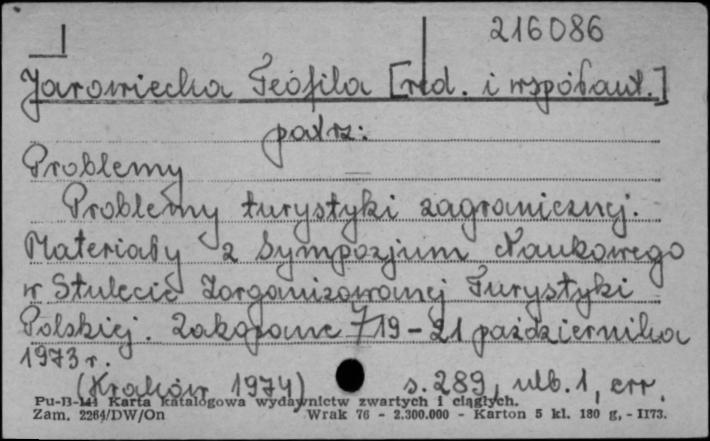 216086
Jarowiecka Teofila [red. i współaut.]
patrz:
Problemy
Problemy turystyki zagranicznej.
Materiały z Sympozjum Naukowego
w Stulecie Zorganizowanej Turystyki
Polskiej. Zakopane 19-21 października
1973 r.
(Kraków 1974) s. 289, nlb. 1, err.
Pu-B-141 Karta katalogowa wydawnictw zwartych i ciągłych.
Zam. 2264/DW/On Wrak 76 - 2.300.000 - Karton 5 kl. 180 g, - II73.